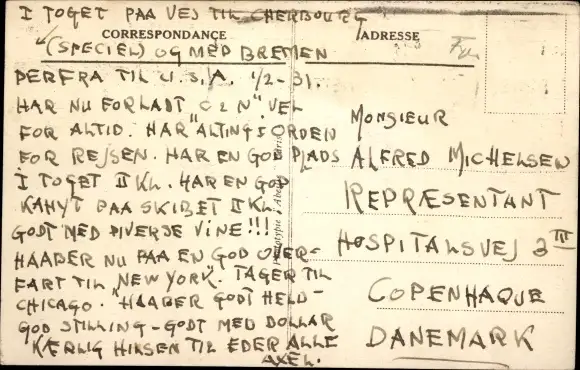 I TOGET PAA VEJ TIL CHERBOURG
CORRESPONDANCE
ADRESSE
(SPECIEL) OG MED BREMEN
DERFRA TIL U.S.A. 1/2-31.
HAR NU FORLADT "C & N" VEL
FOR ALTID. HAR ALTING I ORDEN
FOR REJSEN. HAR EN GOD PLADS
I TOGET II KL. HAR EN GOD
KAHYT PAA SKIBET II KL.
GODT MED DIVERSE VINE!!!
HAABER NU PAA EN GOD OVER-
FART TIL "NEW YORK". TAGER TIL
CHICAGO. "HAABER GODT HELD-
GOD STILLING - GODT MED DOLLAR
KÆRLIG HILSEN TIL EDER ALLE
AXEL.
MONSIEUR
ALFRED MICHELSEN
REPRÆSENTANT
HOSPITALSVEJ 3 III
COPENHAQUE
DANEMARK